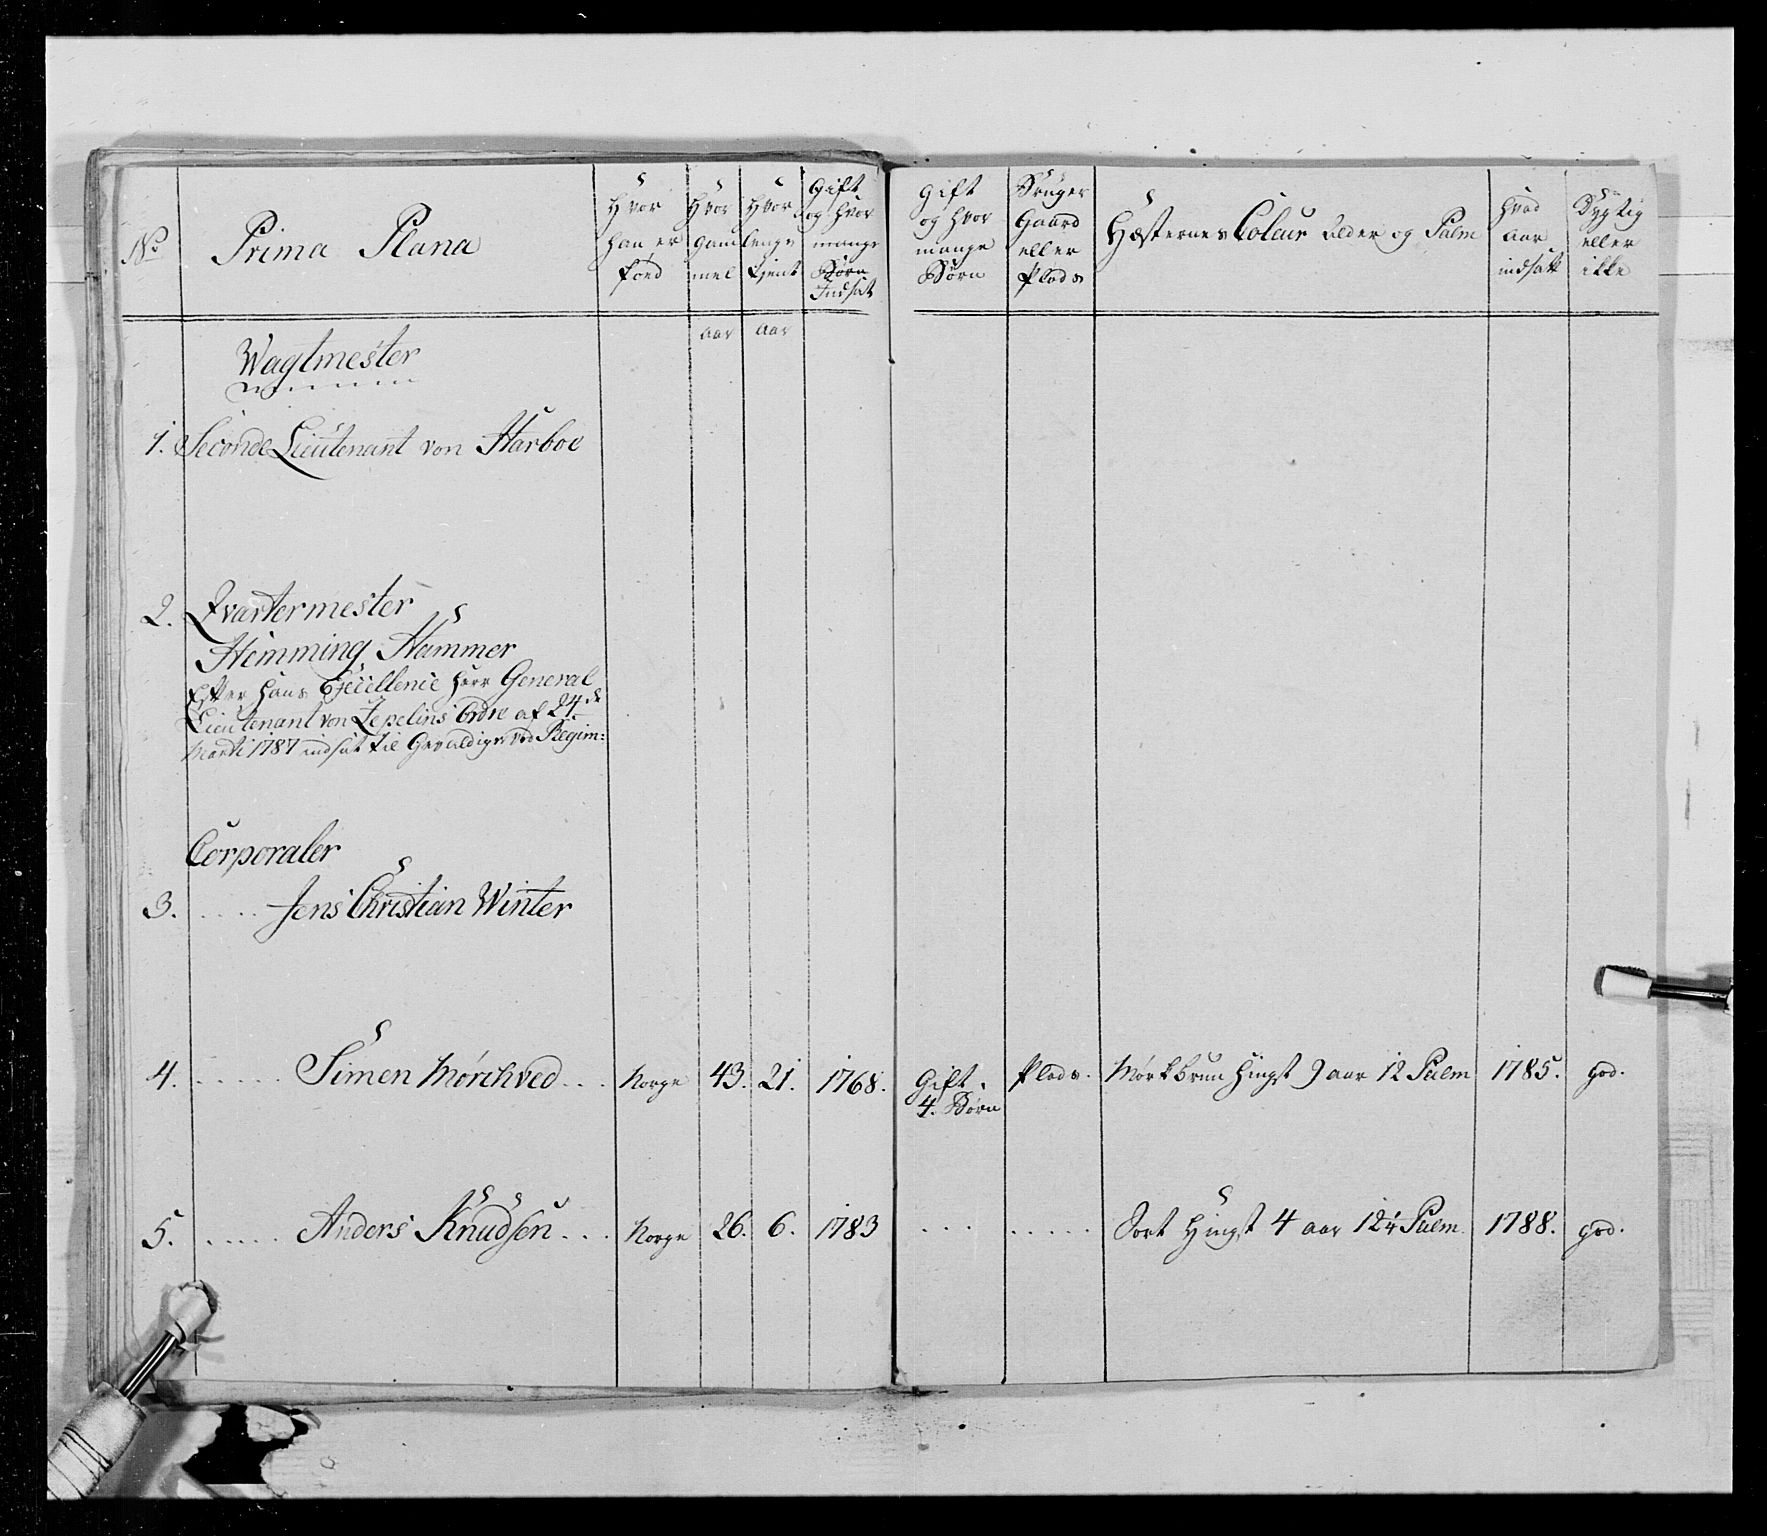 No
Prima Plana
Hvor
han er
föed
Hvor
gam
mel
Hvor
lenge
tient
Gift
og hvor
mange
Börn
Indsat
Gift
og hvor
mange
Börn
Bruger
Gaard
eller
Plads
Hæsternes Coleur alder og Palm
hvad
aar
indsatt
Dygtig
eller
ikke
aar aar
Wagtmester
1. Seconde Lieutenant von Harboe
2. Qvartermester
Hemming Hammer
Efter hans Excellence Herr General
Lieutenant von Zepelins Ordre af 24de
Marti 1787 indsat til Gevaldiger ved Regim:
Corporaler
3. .... Jens Christian Winter
4. ..... Simen Mörchved ... Norge 43. 21. 1768. Gift. Plads. Mörkbrun Hingst 9 aar 12 Palm 1785. god.
4. Börn
5. ..... Anders Knudsen ... Norge 26. 6. 1783 ... ..... Sort Hingst 4 aar 12¼ Palm. 1788. god.